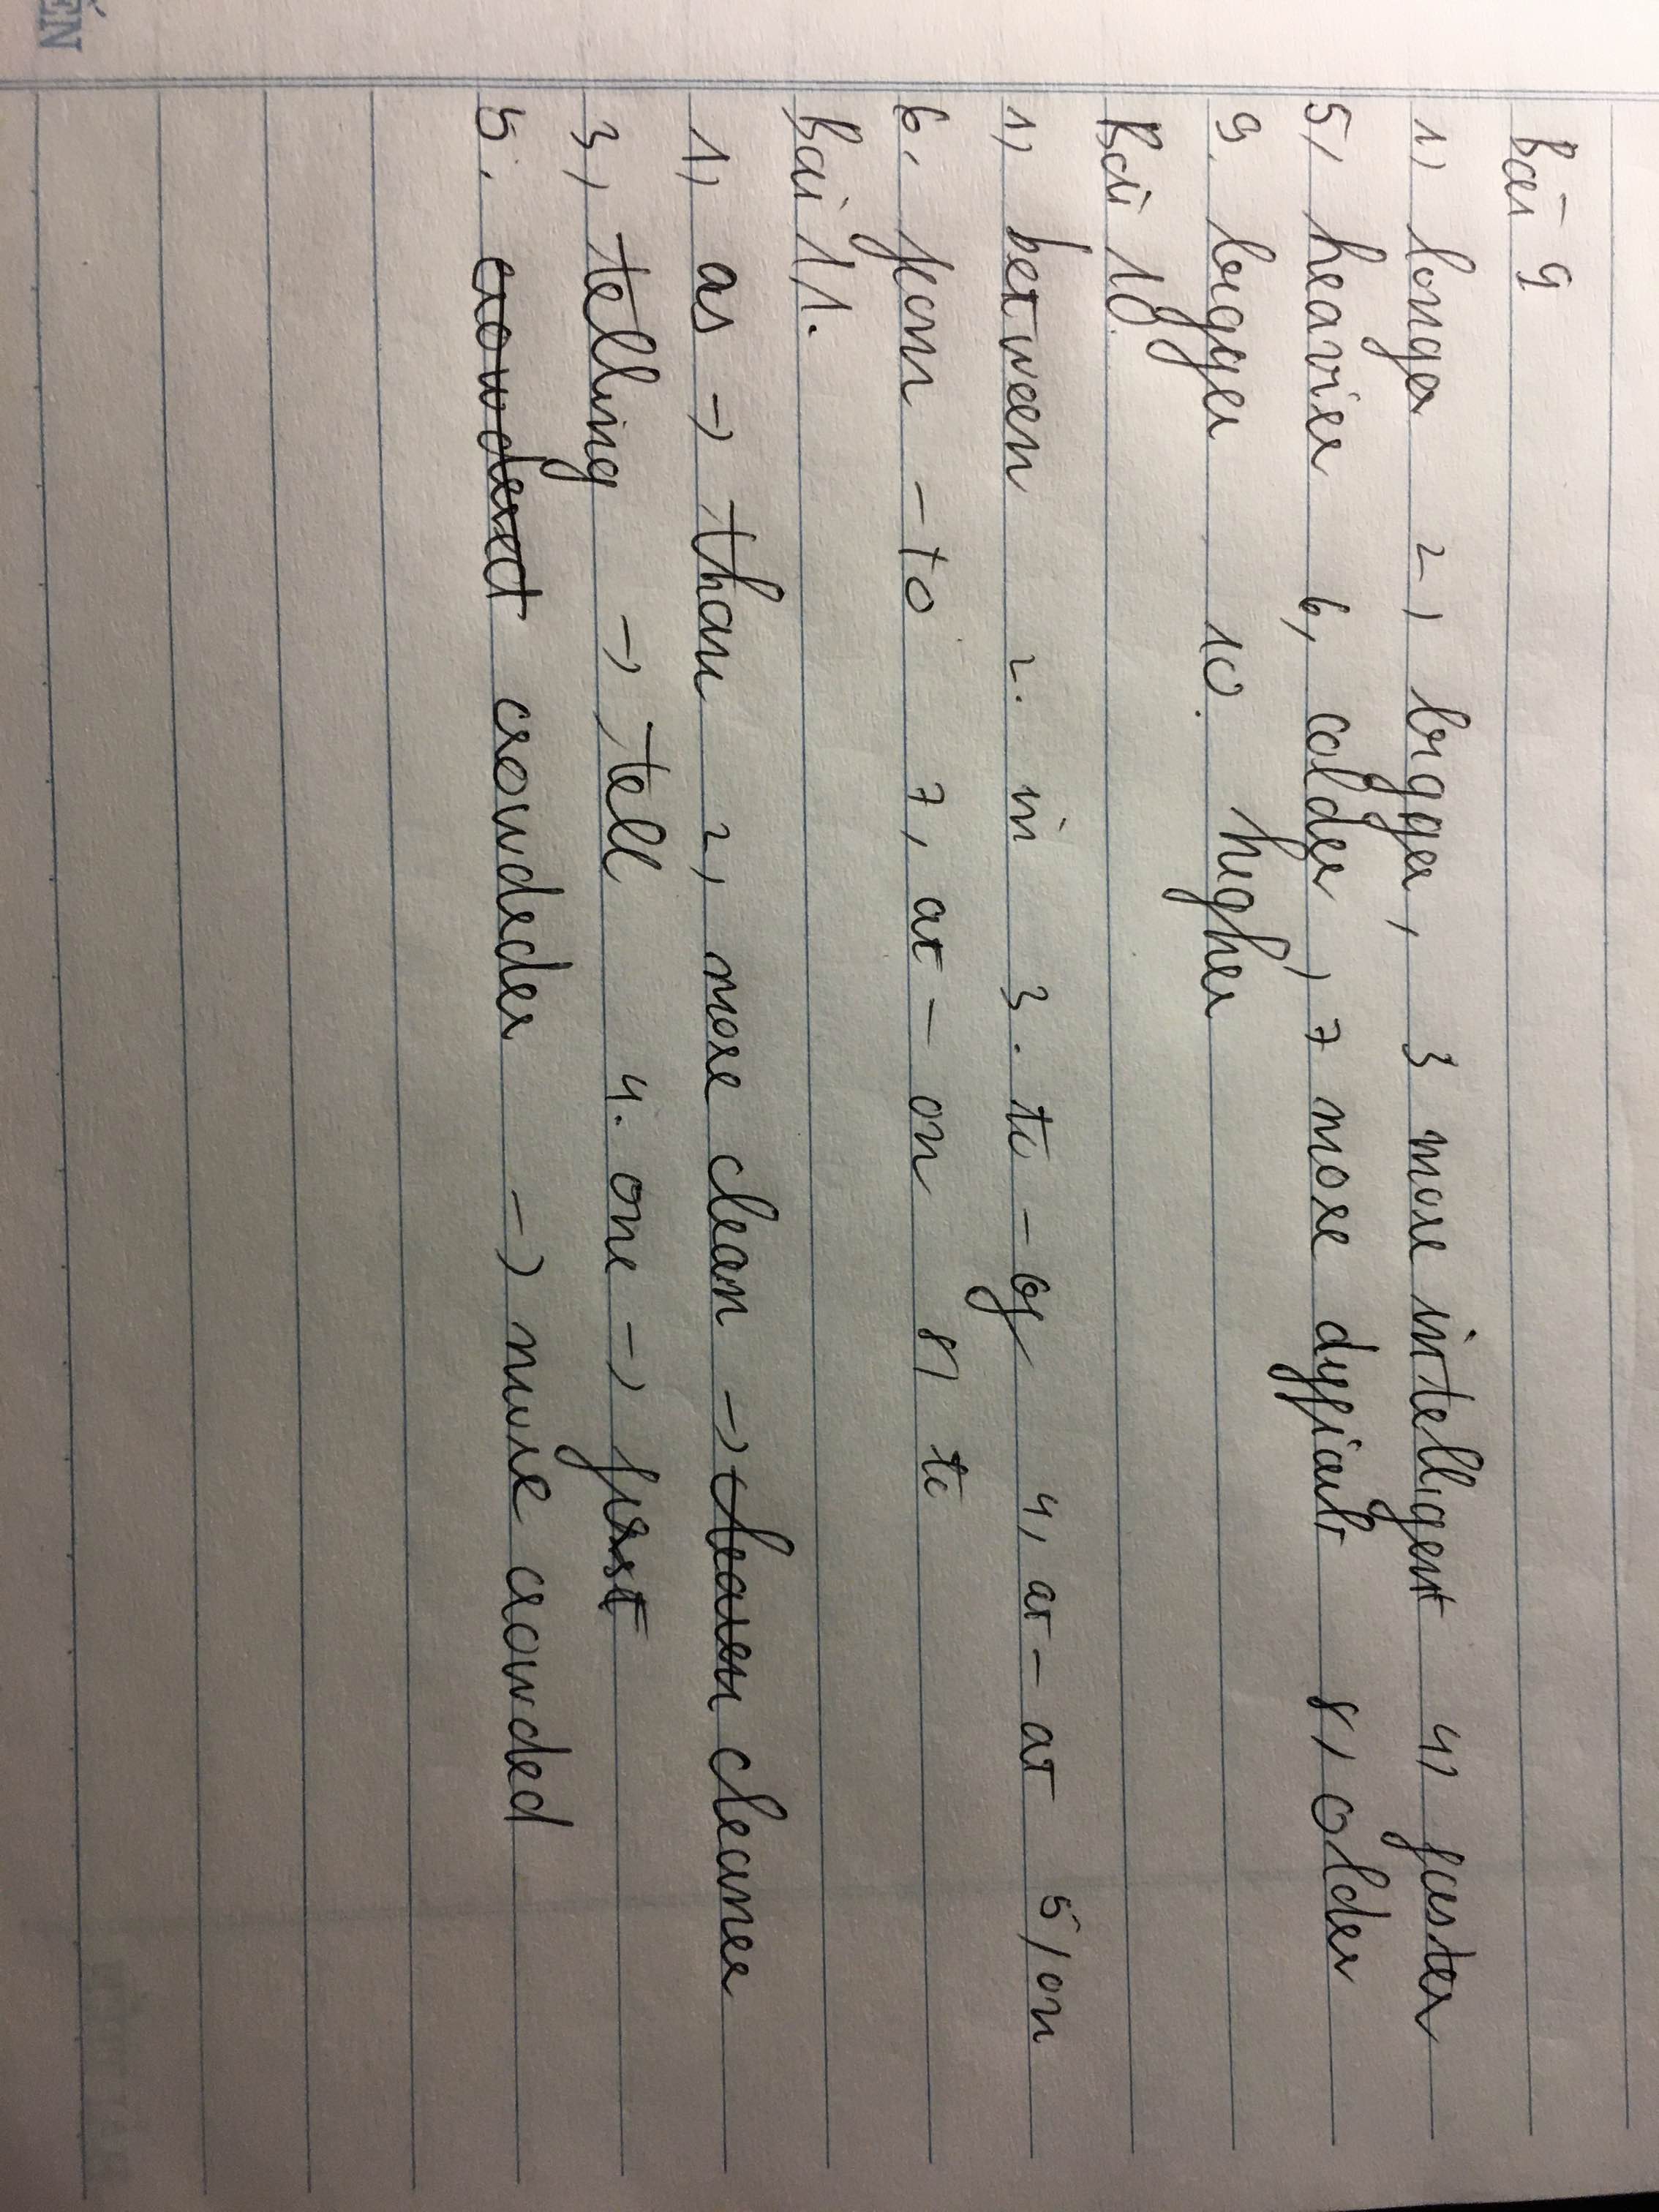 ẾN
Bài 9
1, longer 2, bigger, 3 more intelligent 4, faster
5, heavier 6, colder, 7 more dyficult 8, older
9. bigger 10. higher
Bài 10.
1, between 2. in 3. to - of 4, at - at 5, on
6. from - to 7, at - on 8, to
Bài 11.
1, as -> than 2, more clean -> cleaner
3, telling -> tell 4. one -> first
5. crowdered crowdeder -> more crowded